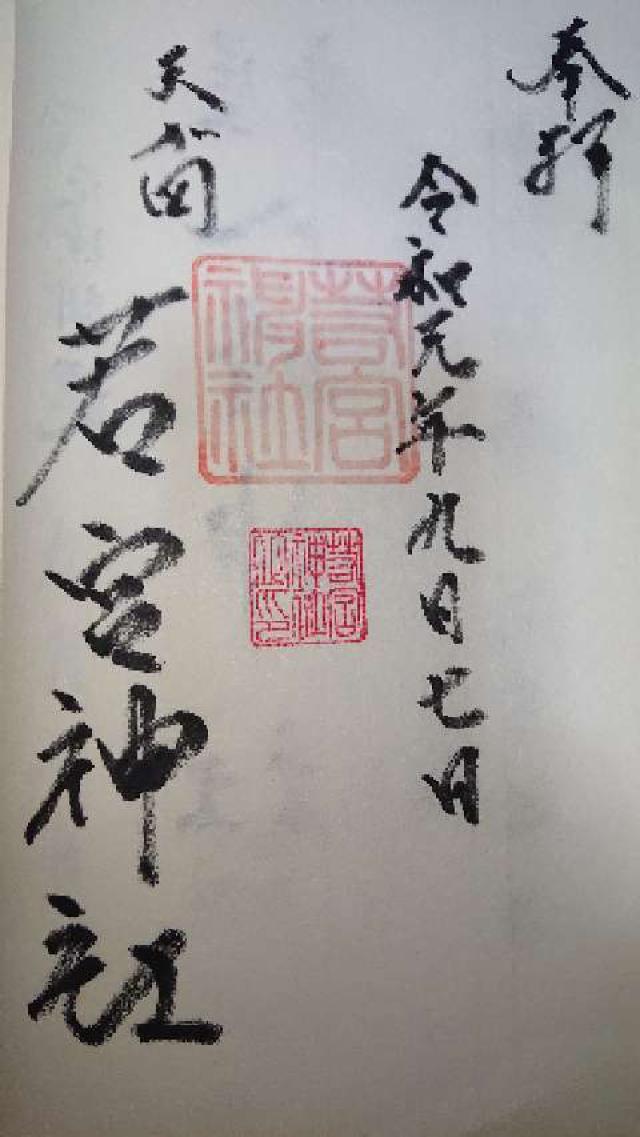 奉拝
令和元年九月七日
若宮神社
若宮
神社
若宮
神社
之印